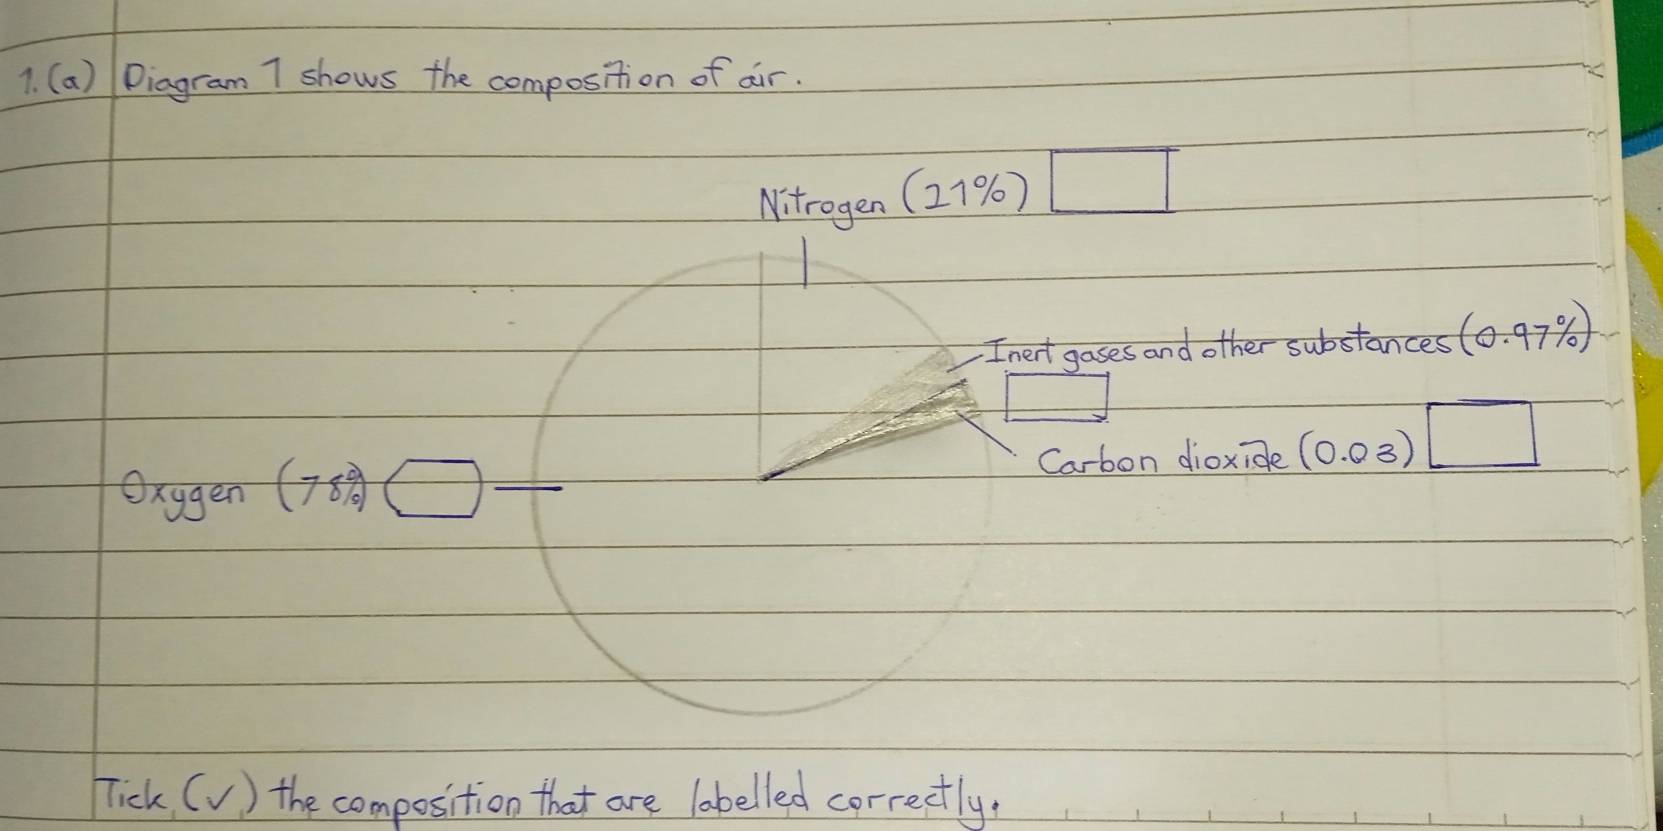 1. (a) Diagram 1 shows the composition of air.
Nitrogen (21%)
Inert gases and other substances (0.97%)
Carbon dioxide (0.03)
Oxygen (78%)
Tick (✓) the composition that are labelled correctly.